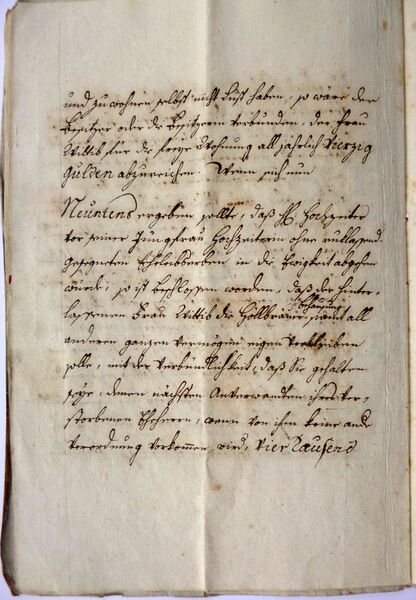 und zu wohnen selbst nicht Lust haben, so wäre der
Besitzer oder die Besitzerin verbunden, der Frau
Wittib für die freye Wohnung all jährlich Vierzig
Gulden abzureichen. Wenn sich nun
Neuntens ergeben sollte, daß H. Hochzeiter
vor seiner Jungfrau Hochzeiterin ohne
gesegneten Ehleibserben in die Ewigkeit abgehen
würde, so ist beschlossen worden, daß der hinter-
lassenen Frau Wittib die Höllbräuer behausung samt all
anderen ganzen vermögen eigen verbleiben
solle, mit der Verbindlichkeit, daß Sie gehalten
seye, denen nächsten Anverwandten ihres ver-
storbenen Eheherrn, wenn von ihm keine ande
verordnung vorkommen wird, Vier Tausend